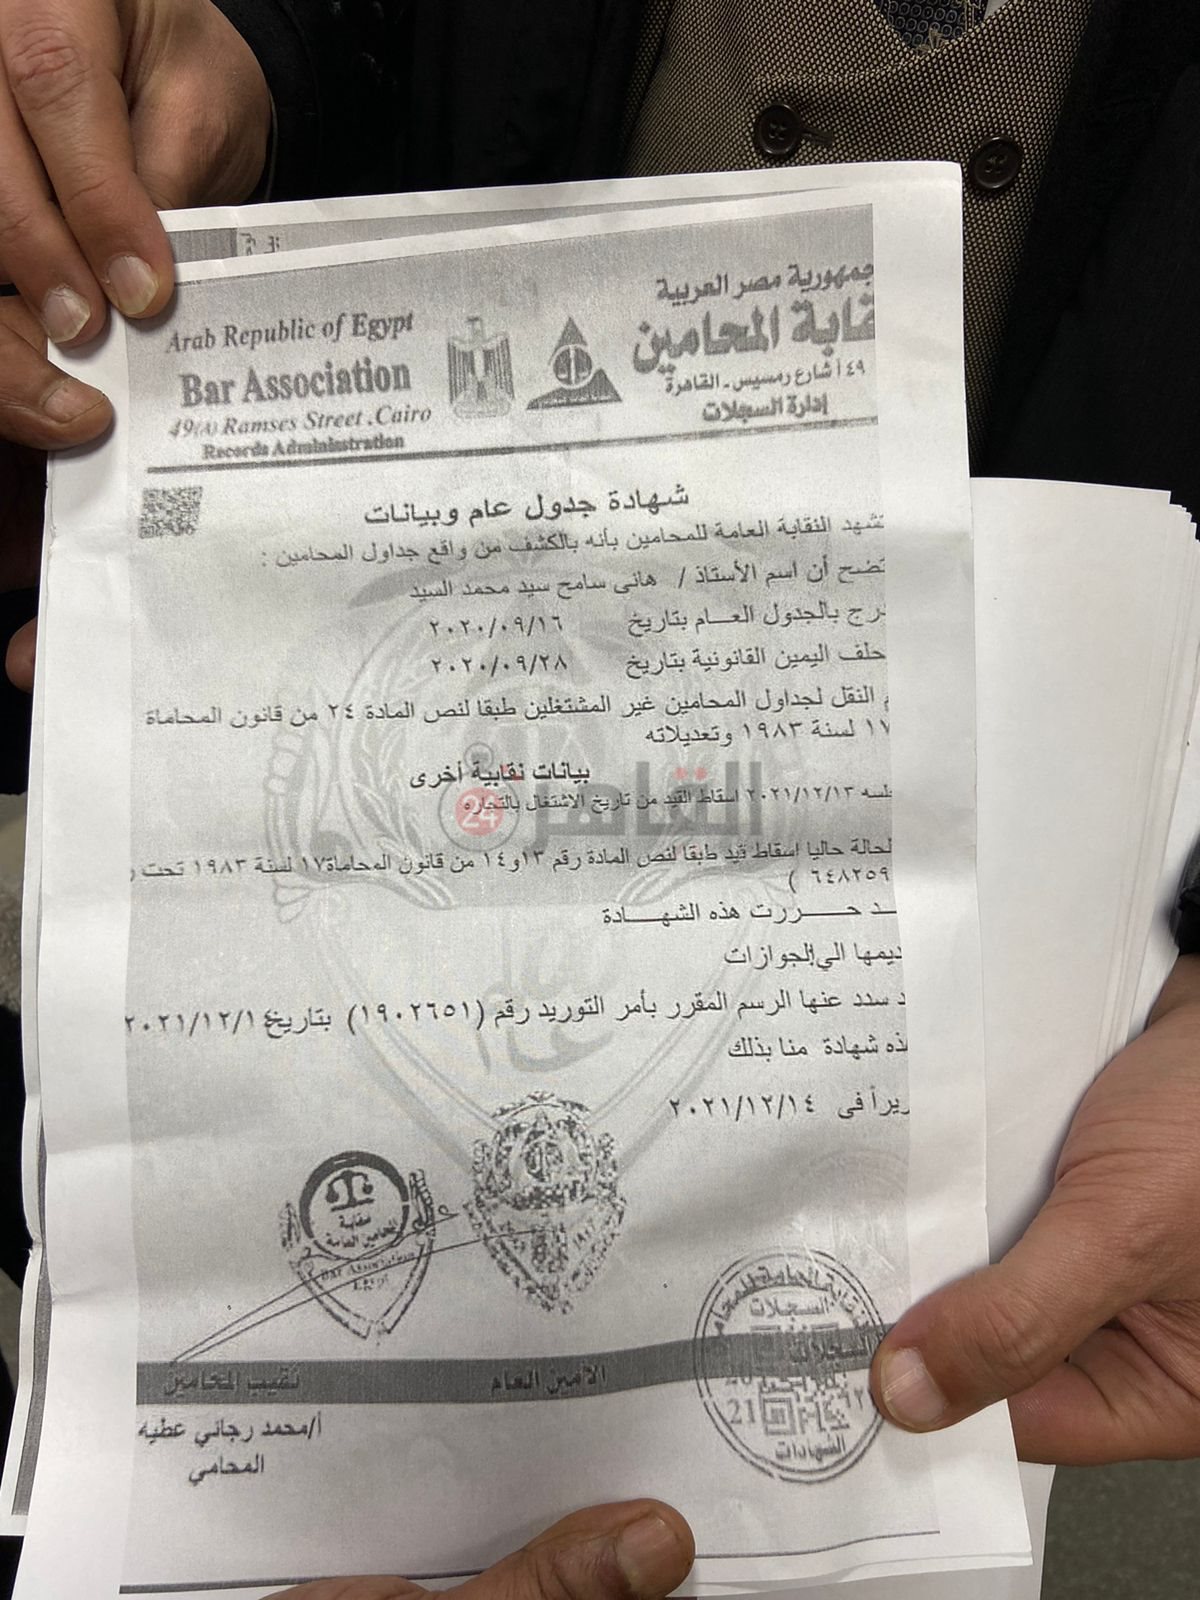 Arab Republic of Egypt
Bar Association
49(A) Ramses Street .Cairo
Records Administration
جمهورية مصر العربية
قابة المحامين
٤٩ أ شارع رمسيس - القاهرة
إدارة السجلات
شهادة جدول عام وبيانات
تشهد النقابة العامة للمحامين بأنه بالكشف من واقع جداول المحامين :
تضح أن اسم الأستاذ / هانى سامح سيد محمد السيد
درج بالجدول العـام بتاريخ ٢٠٢٠/٠٩/١٦
حلف اليمين القانونية بتاريخ ٢٠٢٠/٠٩/٢٨
م النقل لجداول المحامين غير المشتغلين طبقا لنص المادة ٢٤ من قانون المحاماة
١٧ لسنة ١٩٨٣ وتعديلاته
بيانات نقابية أخرى
جلسه ٢٠٢١/١٢/١٣ اسقاط القيد من تاريخ الاشتغال بالتجاره
القاهرة 24
لحالة حاليا إسقاط قيد طبقا لنص المادة رقم ١٣و١٤ من قانون المحاماة١٧ لسنة ١٩٨٣ تحت ر
٦٤٨٢٥٩ )
ـد حـــررت هذه الشهـــادة
ديمها الي الجوازات
د سدد عنها الرسم المقرر بأمر التوريد رقم (١٩٠٢٦٥١) بتاريخ ٢٠٢١/١٢/١٤
ذه شهادة منا بذلك
ريراً فى ٢٠٢١/١٢/١٤
نقابة
المحامين العامة
Bar Association
Egypt
السجلات
21
الشهادات
الأمين العام
نقيب المحامين
أ/محمد رجائي عطيه
المحامي